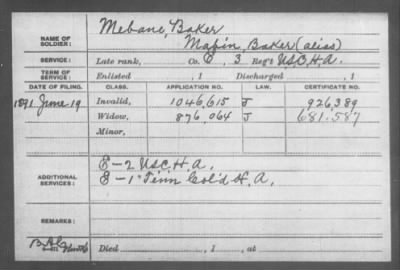 NAME OF SOLDIER: Mebane, Baker
Mapin, Baker (alias)
SERVICE: Late rank, Co. E, 3 Reg't U.S.C.H.A.
TERM OF SERVICE: Enlisted , 1 Discharged , 1
DATE OF FILING. CLASS. APPLICATION NO. LAW. CERTIFICATE NO.
1891 June 19 Invalid, 1046,615 J 926,389
Widow, 876,064 J 681,587
Minor,
ADDITIONAL SERVICES: E-2 U.S.C.H.A.
E-1" Tenn Col'd H.A.
REMARKS:
Died , 1 , at